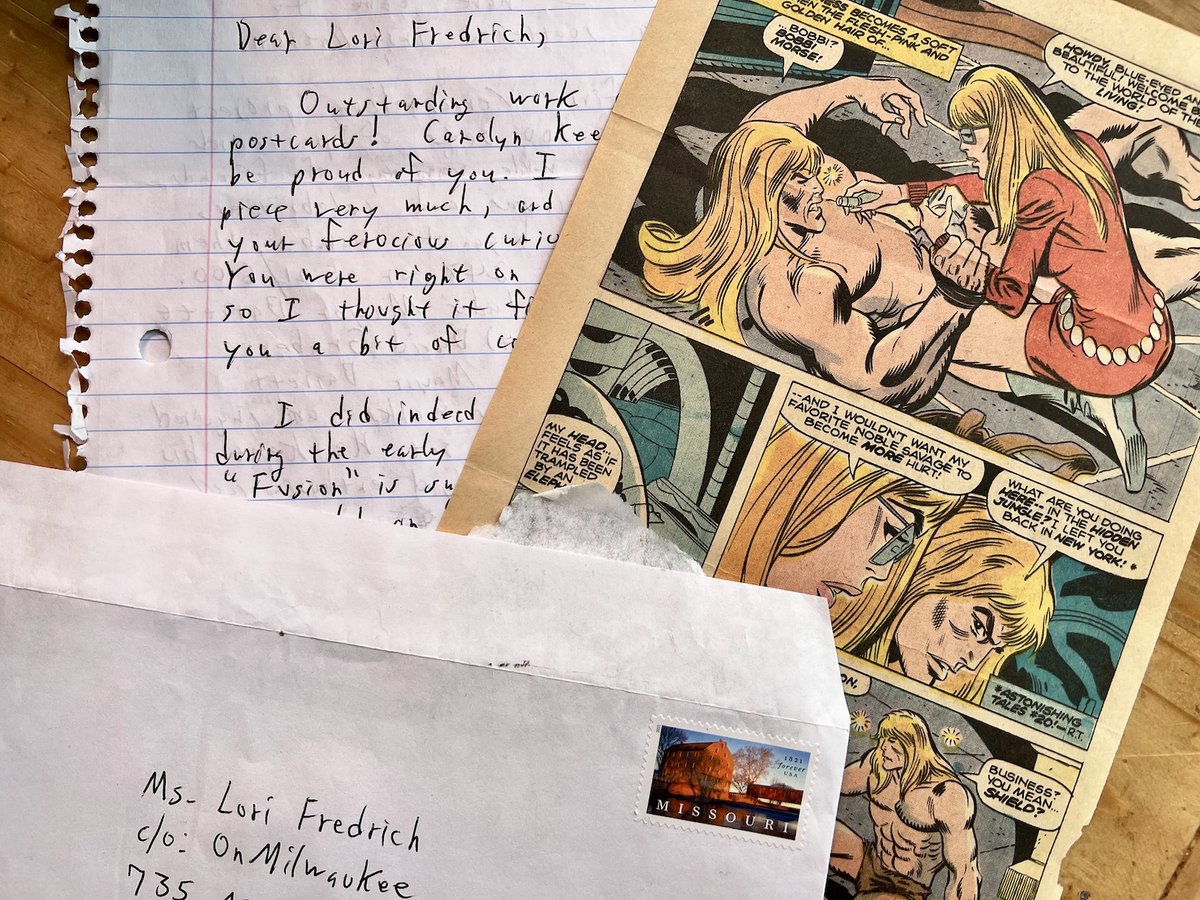 Dear Lori Fredrich,
Outstanding work
postcards! Carolyn Kee
be proud of you. I
piece very much, and
your ferocious curio
You were right on
so I thought it f
you a bit of co
I did indeed
during the early
"Fusion" is su
NESS BECOMES A SOFT
EN THE FLESH-PINK AND
GOLDEN HAIR OF...
BOBBI?
BOBBI
MORSE!
HOWDY, BLUE-EYED AND
BEAUTIFUL! WELCOME BACK
TO THE WORLD OF THE
LIVING!
MY HEAD...
FEELS AS IF
IT HAS BEEN
TRAMPLED
BY AN
ELEPH
--AND I WOULDN'T WANT MY
FAVORITE NOBLE SAVAGE TO
BECOME MORE HURT!
WHAT ARE YOU DOING
HERE... IN THE HIDDEN
JUNGLE? I LEFT YOU
BACK IN NEW YORK!*
*ASTONISHING
TALES #20!--R.T.
ON,
BUSINESS?
YOU MEAN...
SHIELD?
1821
forever
USA
MISSOURI
Ms. Lori Fredrich
c/o: OnMilwaukee
735